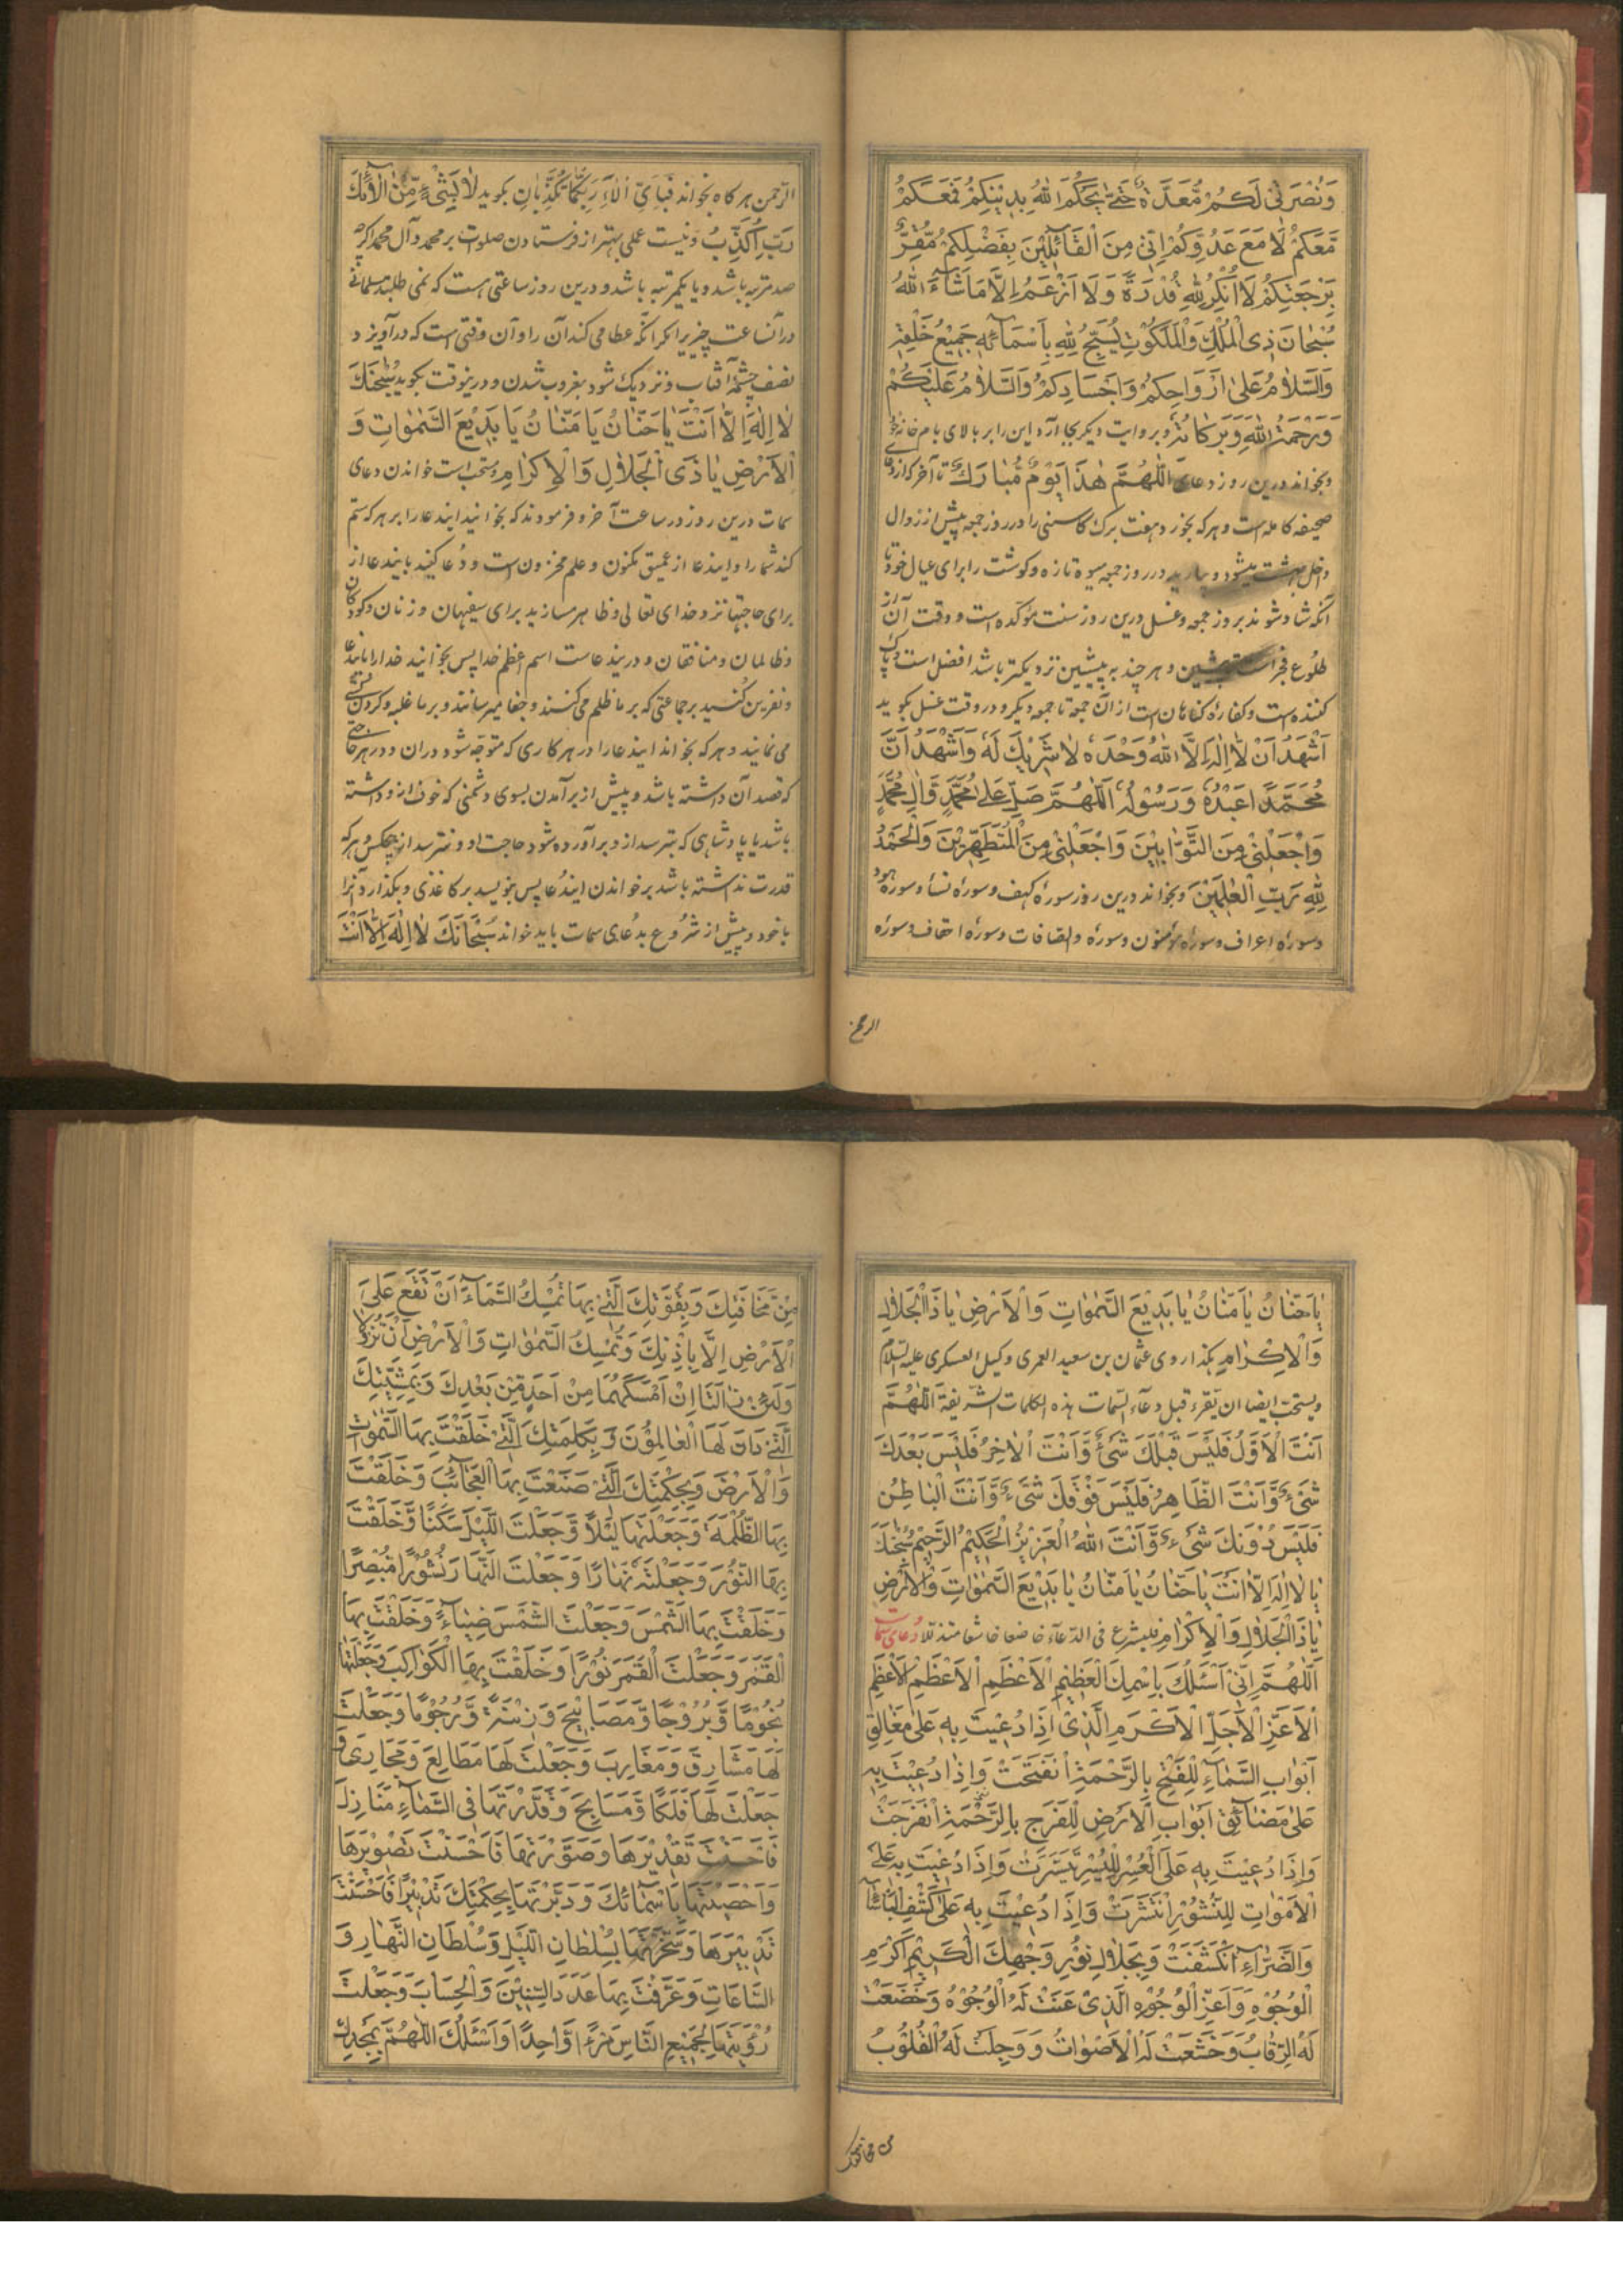 وَنُصْرَتِيْ لَكُمْ مُّعَدَّةٌ حَتّٰى يَحْكُمَ اللّٰهُ بِدِيْنِكُمْ فَمَعَكُمْ
مَّعَكُمْ لَا مَعَ عَدُوِّكُمْ اِنِّيْ مِنَ الْقَائِلِيْنَ بِفَضْلِكُمْ مُّقِرٌّ
بِرَجْعَتِكُمْ لَا اُنْكِرُ لِلّٰهِ قُدْرَةً وَلَا اَزْعَمُ اِلَّا مَا شَاءَ اللّٰهُ
سُبْحَانَ ذِي الْمُلْكِ وَالْمَلَكُوْتِ يُسَبِّحُ لِلّٰهِ بِاَسْمَائِهٖ جَمِيْعُ خَلْقِهٖ
وَالسَّلَامُ عَلٰى اَرْوَاحِكُمْ وَاَجْسَادِكُمْ وَالسَّلَامُ عَلَيْكُمْ
وَرَحْمَةُ اللّٰهِ وَبَرَكَاتُهٗ وبروایت دیگر بجا آرد این را بر بالای بام خانه
وبخواند درین روز دعای اَللّٰهُمَّ هٰذَا يَوْمٌ مُّبَارَكٌ تا آخر که از
صحیفه کامله است وهر که بخورد هفت برک کاسنی را در روز جمعه پیش از زوال
داخل بهشت میشود وبیارید در روز جمعه میوه تازه وکوشت را برای عیال خود تا
آنکه شاد شوند بروز جمعه وغسل درین روز سنت مؤکده است ووقت آن از
طلوع فجر است تا پیشین وهر چند به پیشین نزدیکتر باشد افضل است وپاک
کننده است وکفاره کناهان است از آن جمعه تا جمعه دیکر ودر وقت غسل بکوید
اَشْهَدُ اَنْ لَّا اِلٰهَ اِلَّا اللّٰهُ وَحْدَهٗ لَا شَرِيْكَ لَهٗ وَاَشْهَدُ اَنَّ
مُحَمَّدًا عَبْدُهٗ وَرَسُوْلُهٗ اَللّٰهُمَّ صَلِّ عَلٰى مُحَمَّدٍ وَّاٰلِ مُحَمَّدٍ
وَاجْعَلْنِيْ مِنَ التَّوَّابِيْنَ وَاجْعَلْنِيْ مِنَ الْمُتَطَهِّرِيْنَ وَالْحَمْدُ
لِلّٰهِ رَبِّ الْعٰلَمِيْنَ وبخواند درین روز سورۀ کهف وسورۀ نسا وسورۀ هود
وسورۀ اعراف وسورۀ مؤمنون وسورۀ والصافات وسورۀ احقاف وسورۀ
الرحمن
الرّحمن هر کاه بخواند فَبِاَيِّ اٰلَاءِ رَبِّكُمَا تُكَذِّبٰنِ بکوید لَا بِشَيْءٍ مِّنْ اٰلَائِكَ
رَبِّ اُكَذِّبُ ونیست عملی بهتر از فرستادن صلوات بر محمد وآل محمد اکرچه
صد مرتبه باشد ویا یکمرتبه باشد ودرین روز ساعتی است که نمی طلبد مسلمانی
در آنساعت چیزیرا مکر آنکه عطا می کند آن را وآن وقتی است که در آویزد
نصف چشمۀ آفتاب ونزدیک شود بغروب شدن ودرینوقت بکوید سُبْحٰنَكَ
لَا اِلٰهَ اِلَّا اَنْتَ يَا حَنَّانُ يَا مَنَّانُ يَا بَدِيْعَ السَّمٰوَاتِ وَ
الْاَرْضِ يَا ذَى الْجَلَالِ وَالْاِكْرَامِ ومستحب است خواندن دعای
سمات درین روز در ساعت آخر وفرمودند که بخوانید ایندعا را بر هر که ستم
کند شما را وایندعا از عمیق مکنون وعلم مخزون است ودعا کنید بایندعا از
برای حاجتها نزد خدای تعالی وظاهر مسازید برای سفیهان وزنان وکودکان
وظالمان ومنافقان ودریندعاست اسم اعظم خدا پس بخوانید خدا را بایندعا
ونفرین کنید بر جماعتی که بر ما ظلم می کنند وجفا میرسانند وبر ما غلبه وکردن کشی
می نمایند وهر که بخواند ایندعا را در هر کاری که متوجه شود دران ودر هر حاجتی
که قصد آن داشته باشد وپیش از برآمدن بسوی دشمنی که خوف ازو داشته
باشد یا پادشاهی که بترسد ازو برآورده شود حاجت او ونترسد از هیچکس وهر که
قدرت نداشته باشد بر خواندن ایندعا پس بنویسد بر کاغذی وبکذارد آنرا
با خود وپیش از شروع بدعای سمات باید خواند سُبْحَانَكَ لَا اِلٰهَ اِلَّا اَنْتَ
يَا حَنَّانُ يَا مَنَّانُ يَا بَدِيْعَ السَّمٰوَاتِ وَالْاَرْضِ يَا ذَا الْجَلَالِ
وَالْاِكْرَامِ بکذا روی عثمان بن سعید العمری وکیل العسکری علیه السلام
ویستحب ایضا ان یقرء قبل دعاء السمات هذه الکلمات الشریفة اَللّٰهُمَّ
اَنْتَ الْاَوَّلُ فَلَيْسَ قَبْلَكَ شَيْءٌ وَّاَنْتَ الْاٰخِرُ فَلَيْسَ بَعْدَكَ
شَيْءٌ وَّاَنْتَ الظَّاهِرُ فَلَيْسَ فَوْقَكَ شَيْءٌ وَّاَنْتَ الْبَاطِنُ
فَلَيْسَ دُوْنَكَ شَيْءٌ وَّاَنْتَ اللّٰهُ الْعَزِيْزُ الْحَكِيْمُ الرَّحِيْمُ سُبْحٰنَكَ
يَا لَا اِلٰهَ اِلَّا اَنْتَ يَا حَنَّانُ يَا مَنَّانُ يَا بَدِيْعَ السَّمٰوَاتِ وَالْاَرْضِ
يَا ذَا الْجَلَالِ وَالْاِكْرَامِ فلیشرع فی الدعاء خاضعا خاشعا متذللا دعای سمات
اَللّٰهُمَّ اِنِّيْ اَسْئَلُكَ بِاسْمِكَ الْعَظِيْمِ الْاَعْظَمِ الْاَعْظَمِ الْاَعْظَمِ
الْاَعَزِّ الْاَجَلِّ الْاَكْرَمِ الَّذِيْ اِذَا دُعِيْتَ بِهٖ عَلٰى مَغَالِقِ
اَبْوَابِ السَّمَاءِ لِلْفَتْحِ بِالرَّحْمَةِ انْفَتَحَتْ وَاِذَا دُعِيْتَ بِهٖ
عَلٰى مَضَائِقِ اَبْوَابِ الْاَرْضِ لِلْفَرَجِ بِالرَّحْمَةِ انْفَرَجَتْ
وَاِذَا دُعِيْتَ بِهٖ عَلَى الْعُسْرِ لِلْيُسْرِ تَيَسَّرَتْ وَاِذَا دُعِيْتَ بِهٖ عَلَى
الْاَمْوَاتِ لِلنُّشُوْرِ انْتَشَرَتْ وَاِذَا دُعِيْتَ بِهٖ عَلٰى كَشْفِ الْبَاْسَاءِ
وَالضَّرَّاءِ انْكَشَفَتْ وَبِجَلَالِ نُوْرِ وَجْهِكَ الْكَرِيْمِ اَكْرَمِ
الْوُجُوْهِ وَاَعَزِّ الْوُجُوْهِ الَّذِيْ عَنَتْ لَهُ الْوُجُوْهُ وَخَضَعَتْ
لَهُ الرِّقَابُ وَخَشَعَتْ لَهُ الْاَصْوَاتُ وَوَجِلَتْ لَهُ الْقُلُوْبُ
من مخافتک
مِنْ مَّخَافَتِكَ وَبِقُوَّتِكَ الَّتِيْ بِهَا تُمْسِكُ السَّمَاءَ اَنْ تَقَعَ عَلَى
الْاَرْضِ اِلَّا بِاِذْنِكَ وَتُمْسِكُ السَّمٰوَاتِ وَالْاَرْضَ اَنْ تَزُوْلَا
وَلَئِنْ زَالَتَا اِنْ اَمْسَكَهُمَا مِنْ اَحَدٍ مِّنْ بَعْدِكَ وَبِمَشِيَّتِكَ
الَّتِيْ دَانَ لَهَا الْعَالَمُوْنَ وَبِكَلِمَتِكَ الَّتِيْ خَلَقْتَ بِهَا السَّمٰوَاتِ
وَالْاَرْضَ وَبِحِكْمَتِكَ الَّتِيْ صَنَعْتَ بِهَا الْعَجَائِبَ وَخَلَقْتَ
بِهَا الظُّلْمَةَ وَجَعَلْتَهَا لَيْلًا وَّجَعَلْتَ اللَّيْلَ سَكَنًا وَّخَلَقْتَ
بِهَا النُّوْرَ وَجَعَلْتَهٗ نَهَارًا وَّجَعَلْتَ النَّهَارَ نُشُوْرًا مُّبْصِرًا
وَخَلَقْتَ بِهَا الشَّمْسَ وَجَعَلْتَ الشَّمْسَ ضِيَاءً وَّخَلَقْتَ بِهَا
الْقَمَرَ وَجَعَلْتَ الْقَمَرَ نُوْرًا وَّخَلَقْتَ بِهَا الْكَوَاكِبَ وَجَعَلْتَهَا
نُجُوْمًا وَّبُرُوْجًا وَّمَصَابِيْحَ وَزِيْنَةً وَّرُجُوْمًا وَّجَعَلْتَ
لَهَا مَشَارِقَ وَمَغَارِبَ وَجَعَلْتَ لَهَا مَطَالِعَ وَمَجَارِىَ وَ
جَعَلْتَ لَهَا فَلَكًا وَّمَسَابِحَ وَقَدَّرْتَهَا فِي السَّمَاءِ مَنَازِلَ
فَاَحْسَنْتَ تَقْدِيْرَهَا وَصَوَّرْتَهَا فَاَحْسَنْتَ تَصْوِيْرَهَا
وَاَحْصَيْتَهَا بِاَسْمَائِكَ وَدَبَّرْتَهَا بِحِكْمَتِكَ تَدْبِيْرًا فَاَحْسَنْتَ
تَدْبِيْرَهَا وَسَخَّرْتَهَا بِسُلْطَانِ اللَّيْلِ وَسُلْطَانِ النَّهَارِ وَ
السَّاعَاتِ وَعَرَّفْتَ بِهَا عَدَدَ السِّنِيْنَ وَالْحِسَابَ وَجَعَلْتَ
رُؤْيَتَهَا لِجَمِيْعِ النَّاسِ مَرْءًا وَّاحِدًا وَّاَسْئَلُكَ اللّٰهُمَّ بِمَجْدِكَ